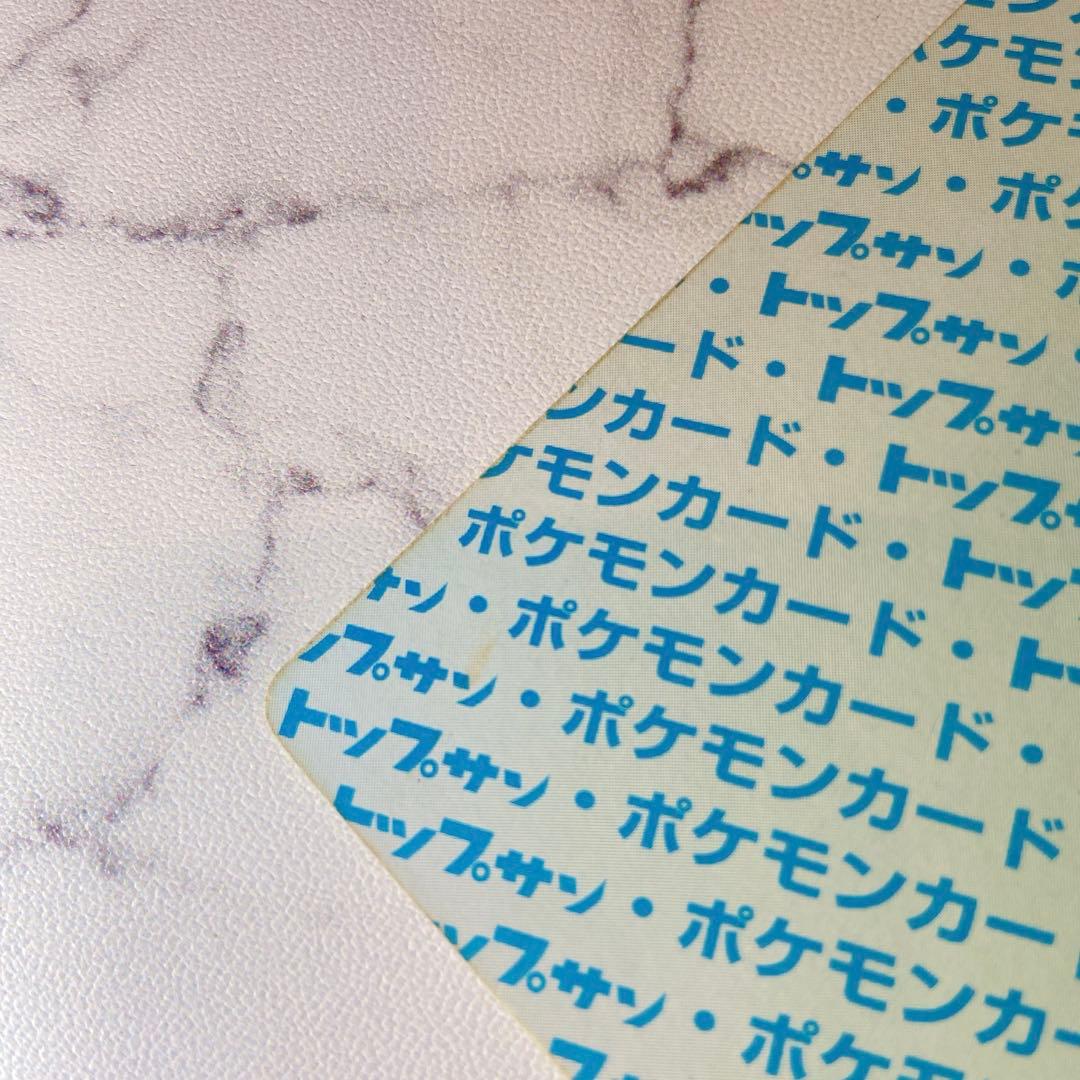 ケモ
・ポケ
プサン・ポ
ップサン・
・トップサン・
ード・トップサン
ンカード・トップ
ケモンカード・トップ
ポケモンカード・ト
サン・ポケモンカード・
ップサン・ポケモンカード
トップサン・ポケモンカー
トップサン・ポケモンカー
ップサン・ポケモ
トップ